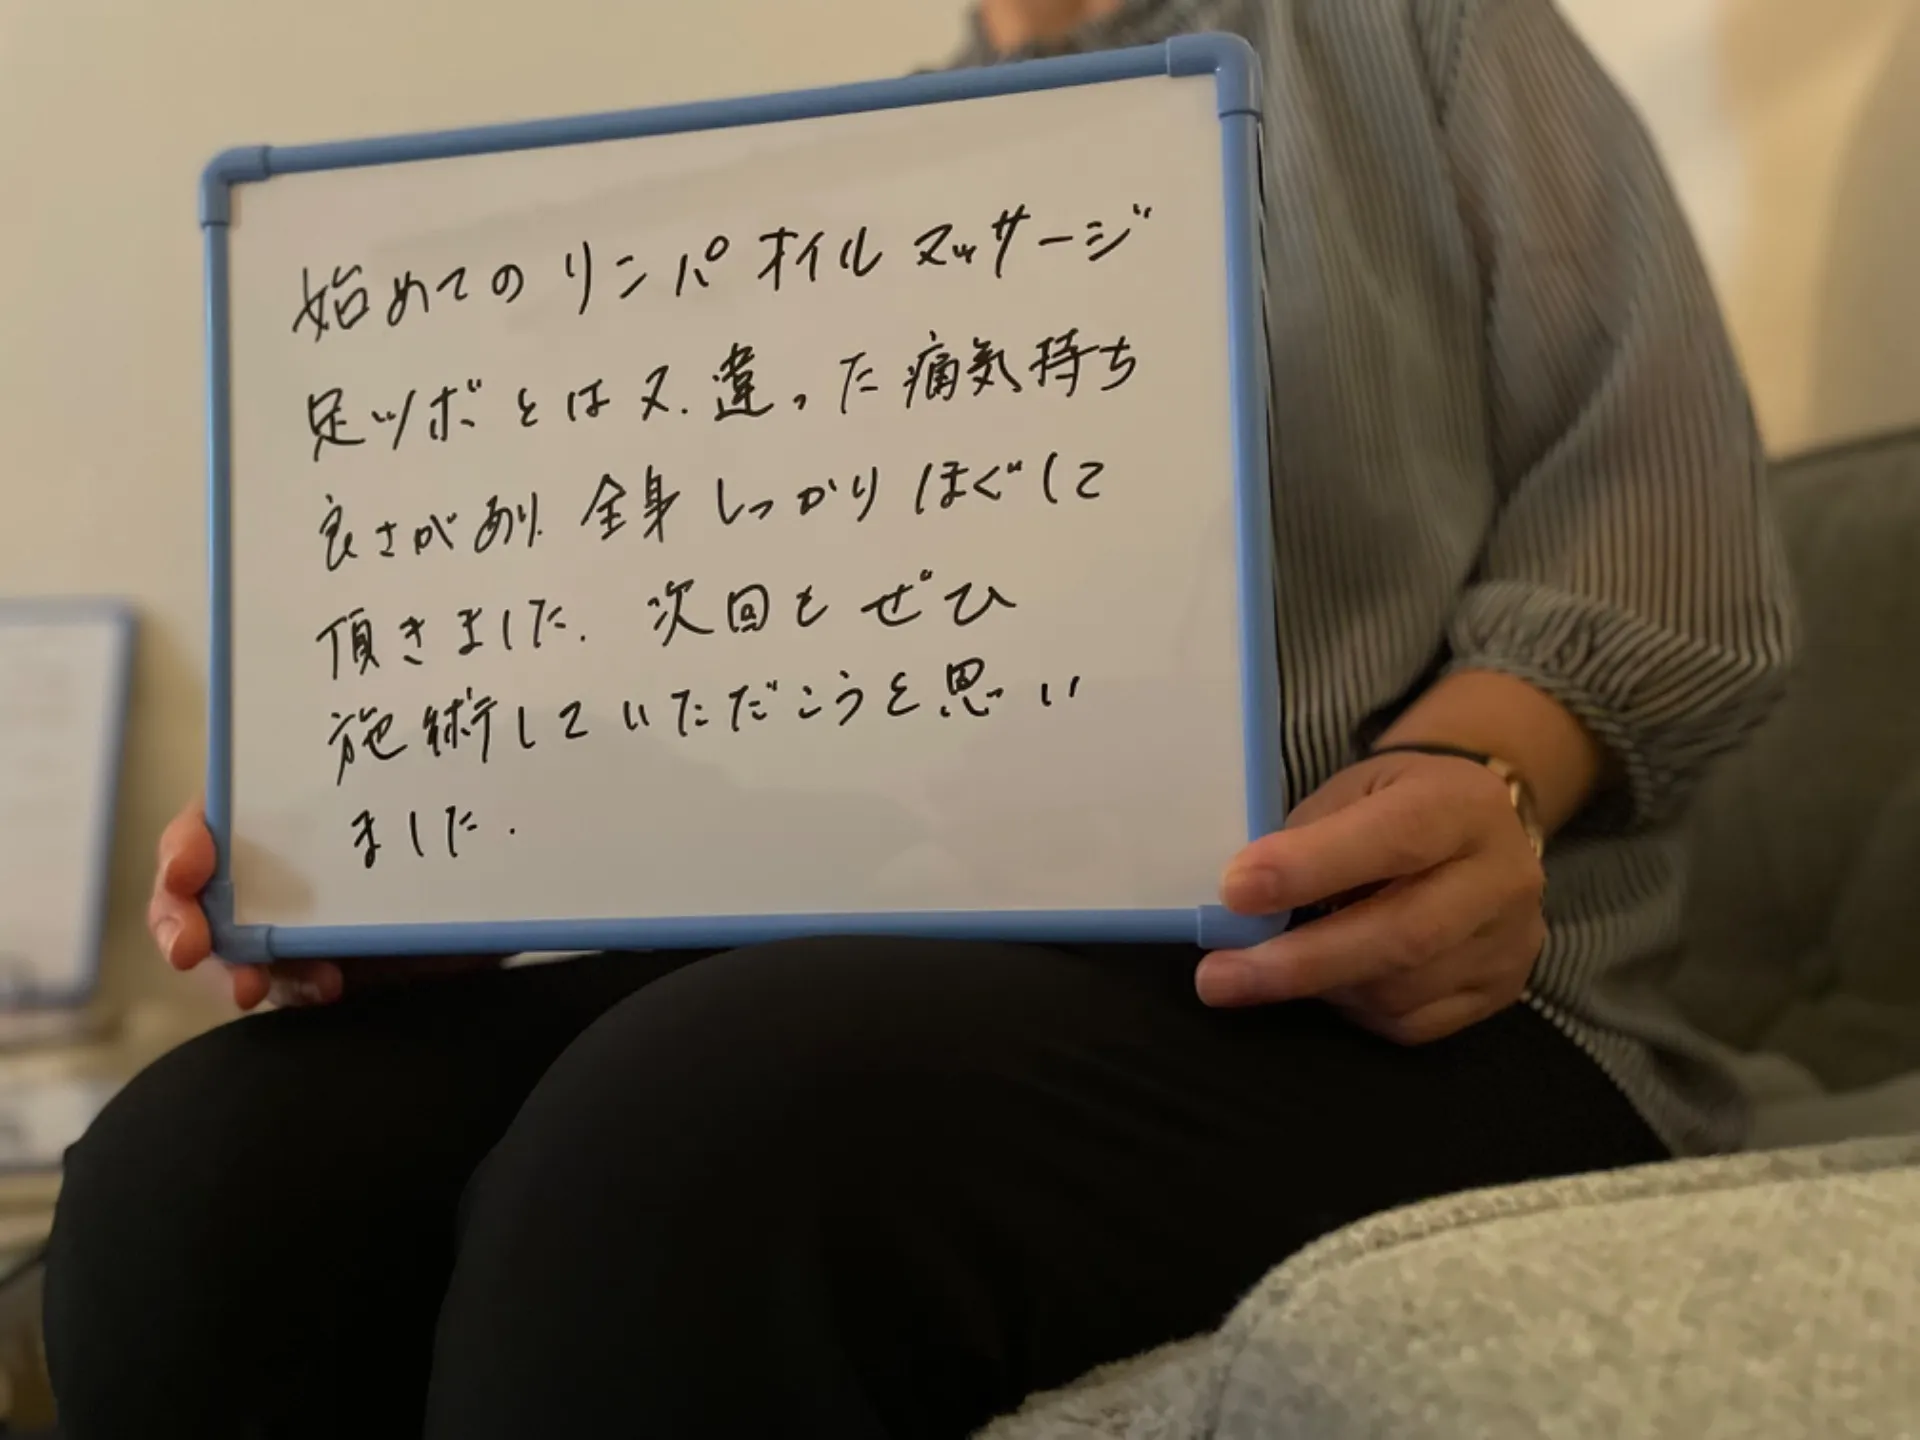 始めてのリンパオイルマッサージ
足ツボとは又.違った痛気持ち
良さがあり.全身しっかりほぐして
頂きました.次回もぜひ
施術していただこうと思い
ました.